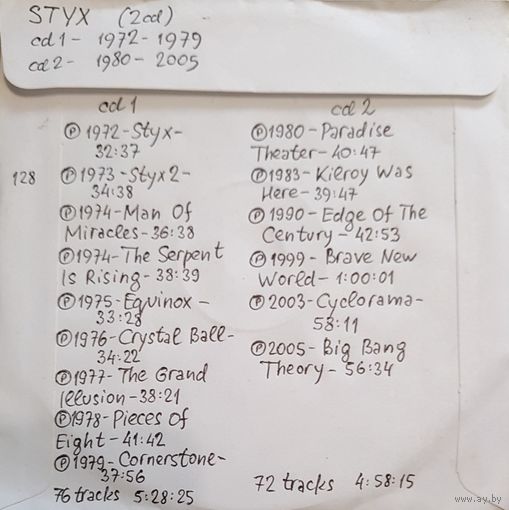 STYX (2cd)
cd1- 1972-1979
cd2- 1980-2005
cd1
℗1972-Styx-
32:37
128
℗1973-Styx2-
34:38
℗1974-Man Of
Miracles-36:38
℗1974-The Serpent
Is Rising-38:39
℗1975-Equinox-
33:28
℗1976-Crystal Ball-
34:22
℗1977-The Grand
Illusion-38:21
℗1978-Pieces Of
Eight-41:42
℗1979-Cornerstone-
37:56
76 tracks 5:28:25
cd2
℗1980-Paradise
Theater-40:47
℗1983-Kilroy Was
Here-39:47
℗1990-Edge Of The
Century-42:53
℗1999-Brave New
World-1:00:01
℗2003-Cyclorama-
58:11
℗2005-Big Bang
Theory-56:34
72 tracks 4:58:15
www.ay.by